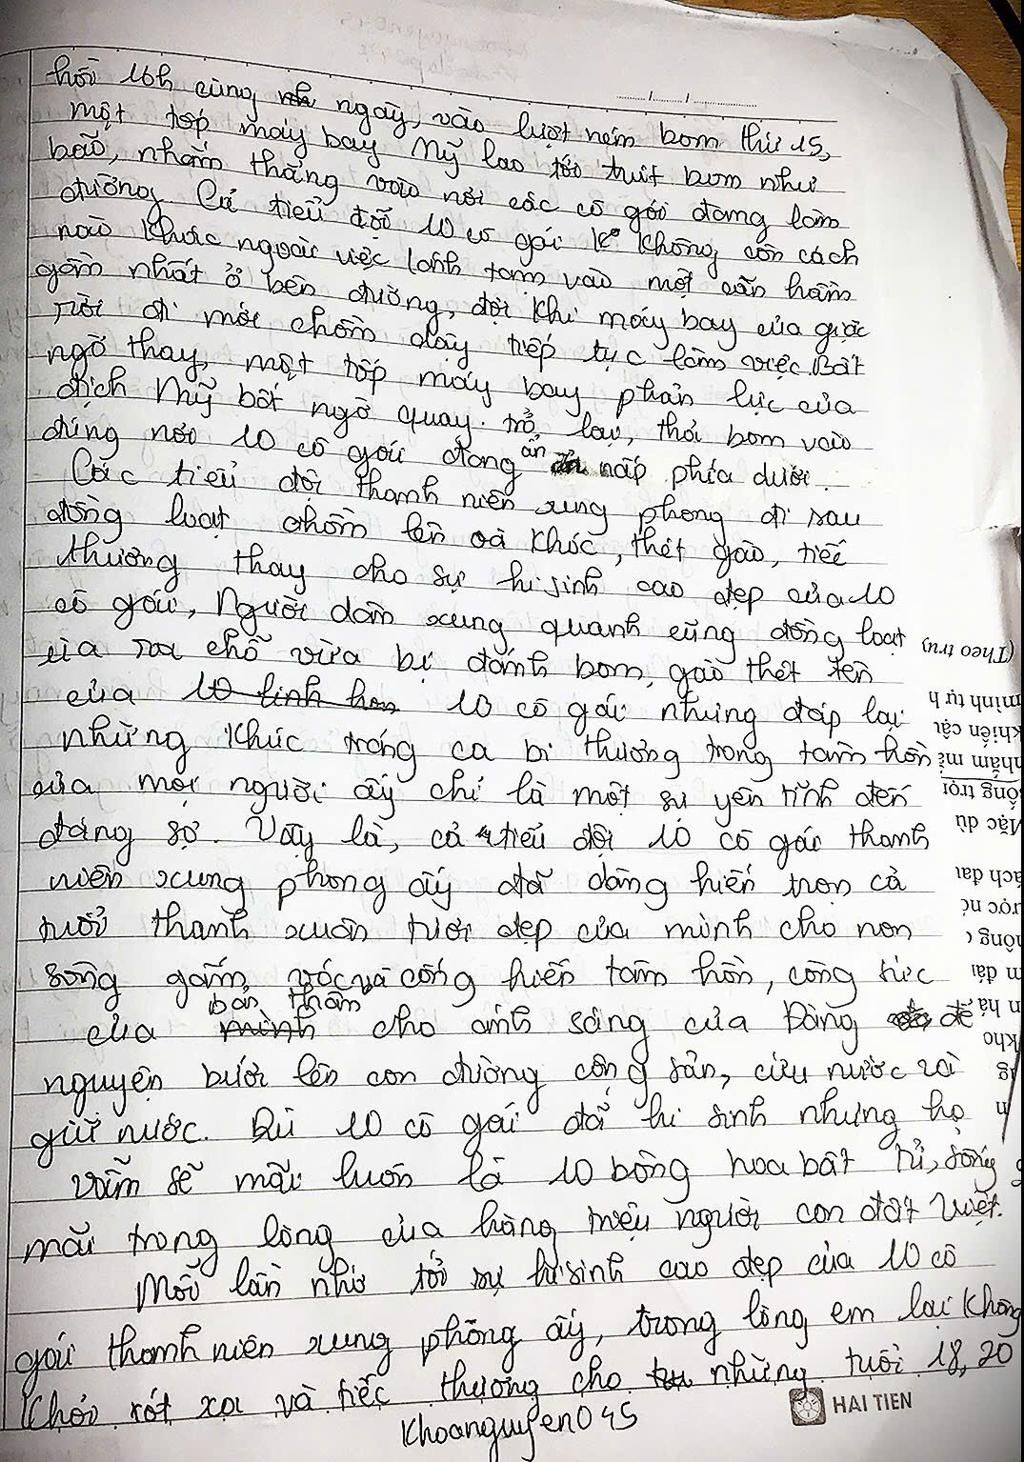 hồi 16h cùng ngày, vào lượt ném bom thứ 15,
một tốp máy bay Mỹ lao tới trút bom như
bão, nhằm thẳng vào nơi các cô gái đang làm
đường. Cả tiểu đội 10 cô gái không còn cách
nào khác ngoài việc lánh tạm vào một căn hầm
gần nhất ở bên đường, đợi khi máy bay của giặc
rời đi mới chồm dậy tiếp tục làm việc. Bất
ngờ thay, một tốp máy bay phản lực của
địch Mỹ bất ngờ quay trở lại, thả bom vào
đúng nơi 10 cô gái đang ẩn nấp phía dưới.
Các tiểu đội thanh niên xung phong đi sau
đồng loạt chồm lên oà khóc, thét gào, tiếc
thương thay cho sự hi sinh cao đẹp của 10
cô gái, Người dân xung quanh cũng đồng loạt
ùa ra chỗ vừa bị đánh bom, gào thét tên
của 10 linh hồn 10 cô gái nhưng đáp lại
những khúc tráng ca bi thương trong tâm hồn
của mọi người ấy chỉ là một sự yên tĩnh đến
đáng sợ. Vậy là, cả tiểu đội 10 cô gái thanh
niên xung phong ấy đã dâng hiến trọn cả
tuổi thanh xuân tươi đẹp của mình cho non
sông gấm vóc và cống hiến tâm hồn, công sức
của bản thân cho ánh sáng của Đảng để
nguyện bước lên con đường cộng sản, cứu nước và
giữ nước. Dù 10 cô gái đã hi sinh nhưng họ
vẫn sẽ mãi luôn là 10 bông hoa bất tử, sống
mãi trong lòng của hàng triệu người con đất Việt.
Mỗi lần nhớ tới sự hi sinh cao đẹp của 10 cô
gái thanh niên xung phong ấy, trong lòng em lại không
khỏi xót xa và tiếc thương cho những tuổi 18, 20
HAI TIEN
Khoanguyen045
(Theo truy
mình tự h
khiến cậu
nhầm mà
ống trọi
Mặc dù
ách đai
ược nó
ông
n đái
n hà
kho